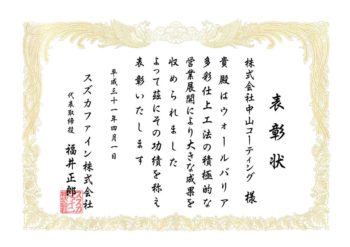 表彰状
株式会社中山コーティング 様
貴殿はウォールバリア
多彩仕上工法の積極的な
営業展開により大きな成果を
収められました
よって茲にその功績を称え
表彰いたします
平成三十一年四月一日
スズカファイン株式会社
代表取締役 福井正郎